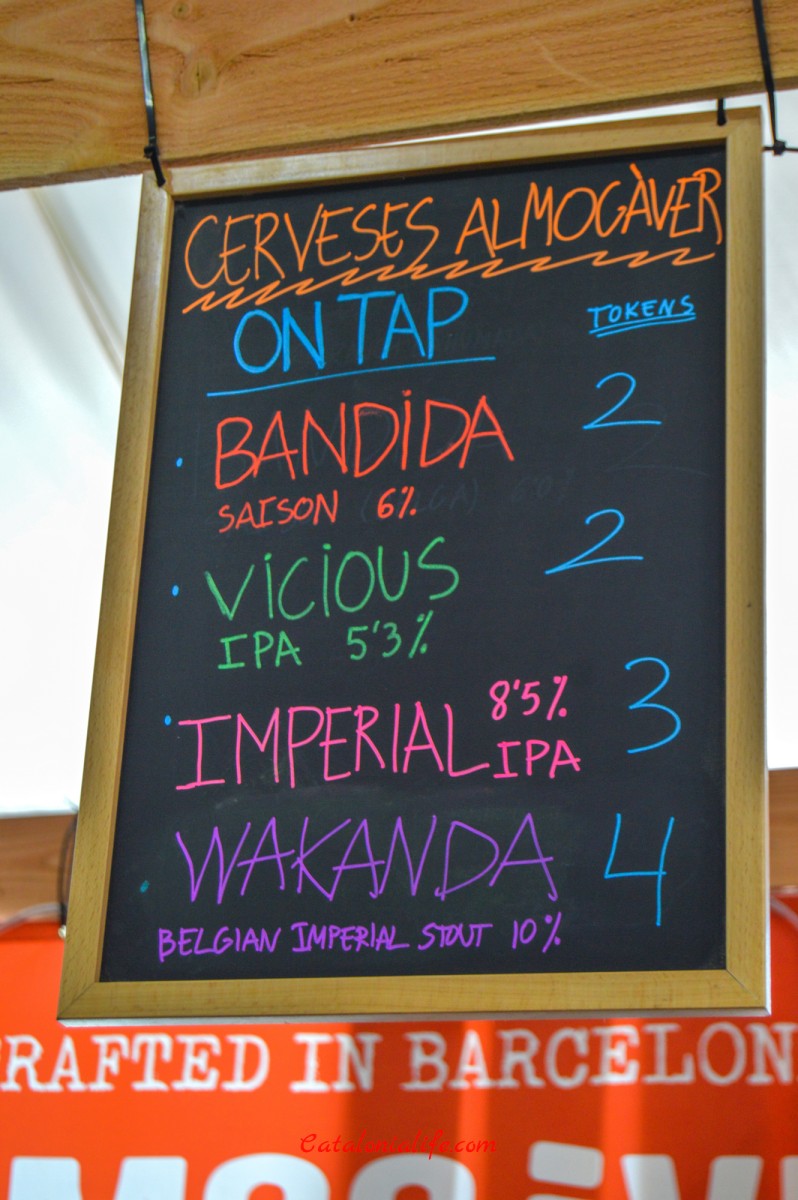 CERVESES ALMOGÀVER
ON TAP TOKENS
BANDIDA 2
SAISON 6%
VICIOUS 2
IPA 5'3%
IMPERIAL 8'5% IPA 3
WAKANDA 4
BELGIAN IMPERIAL STOUT 10%
CRAFTED IN BARCELON
Catalonialife.com